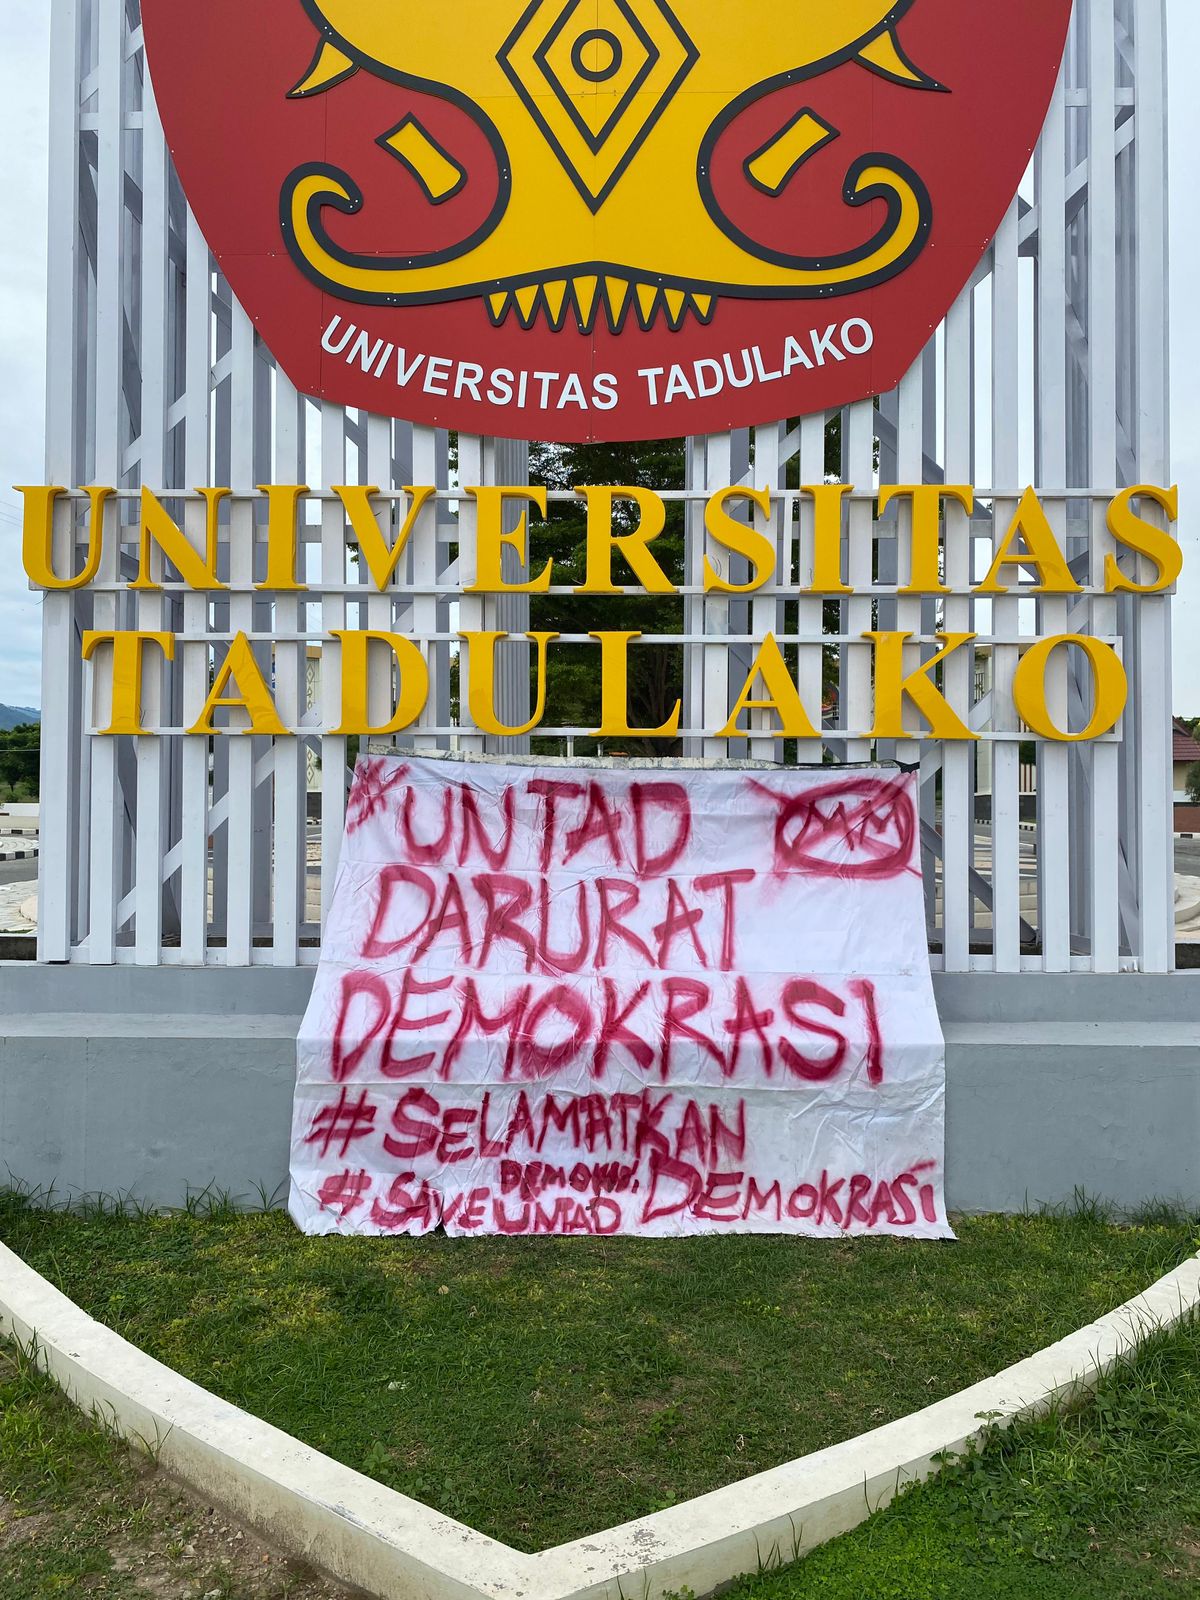 UNIVERSITAS TADULAKO
UNIVERSITAS
TADULAKO
*UNTAD
MM
DARURAT
DEMOKRASI
#SELAMATKAN
DEMOKRASI
#SAVEUNTAD